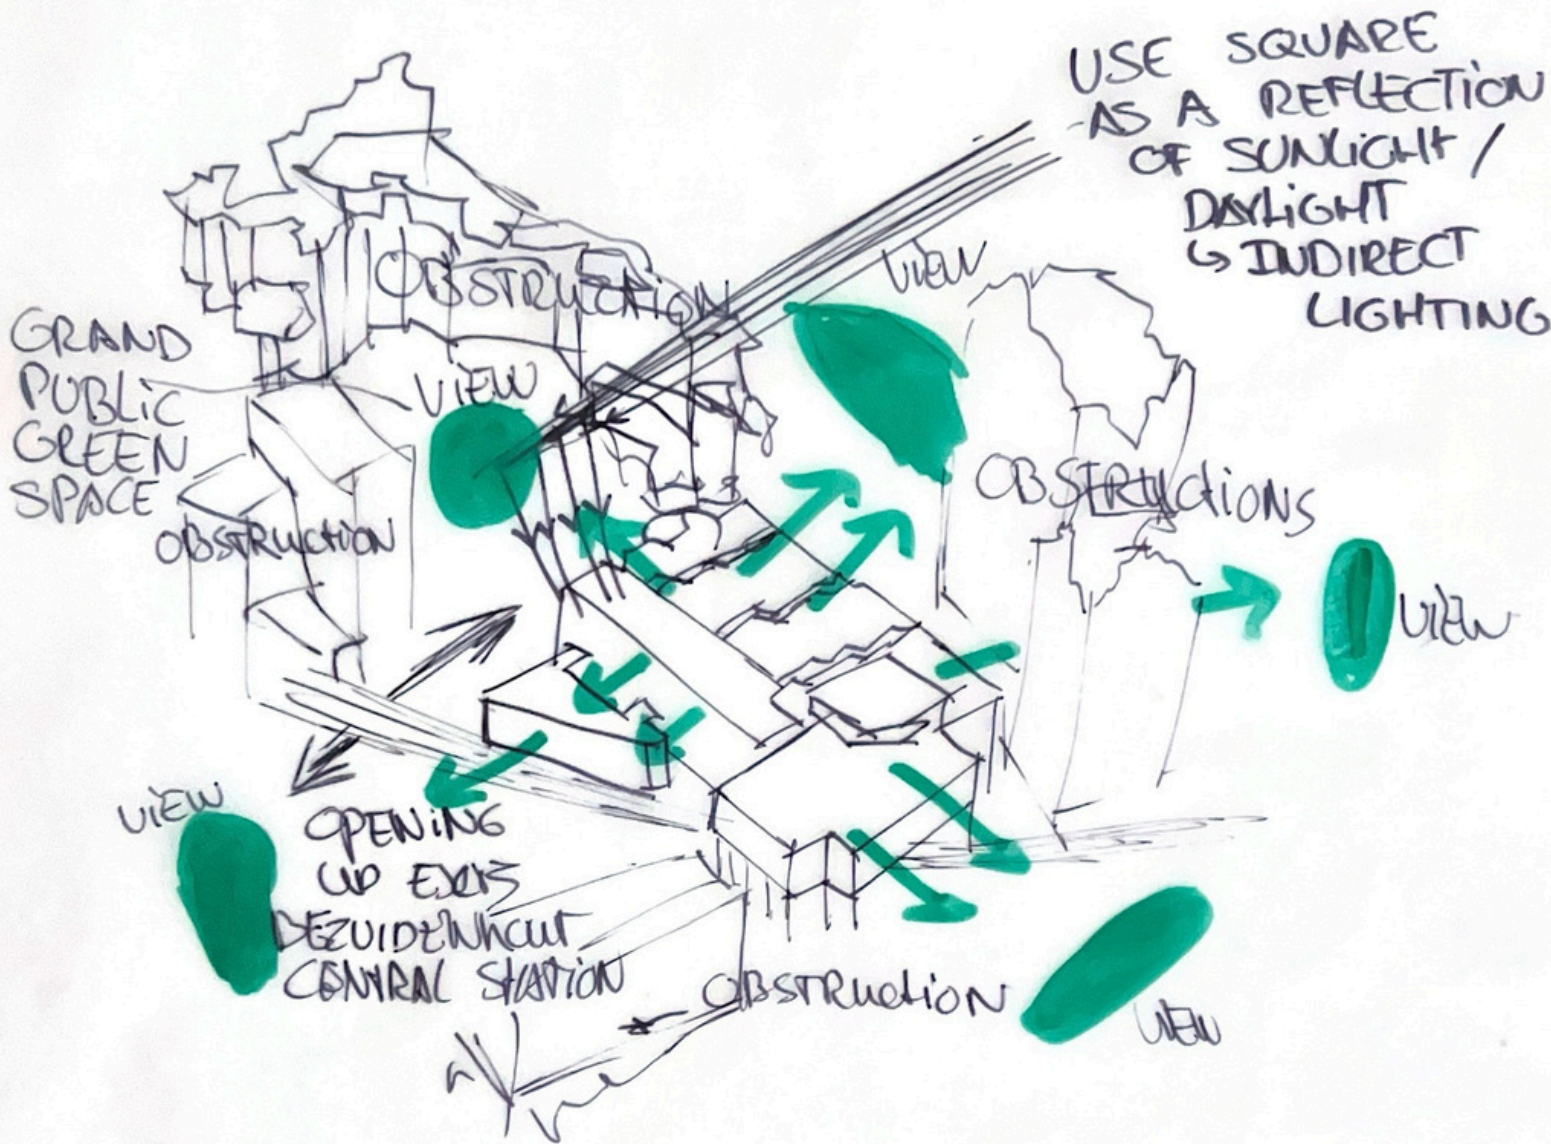 USE SQUARE
AS A REFLECTION
OF SUNLIGHT /
DAYLIGHT
↳ INDIRECT
LIGHTING
VIEW
OBSTRUCTION
GRAND
PUBLIC
GREEN
SPACE
VIEW
OBSTRUCTIONS
OBSTRUCTION
VIEW
VIEW
OPENING
UP
BEZUIDENHOUT
CENTRAL STATION
OBSTRUCTION
VIEW